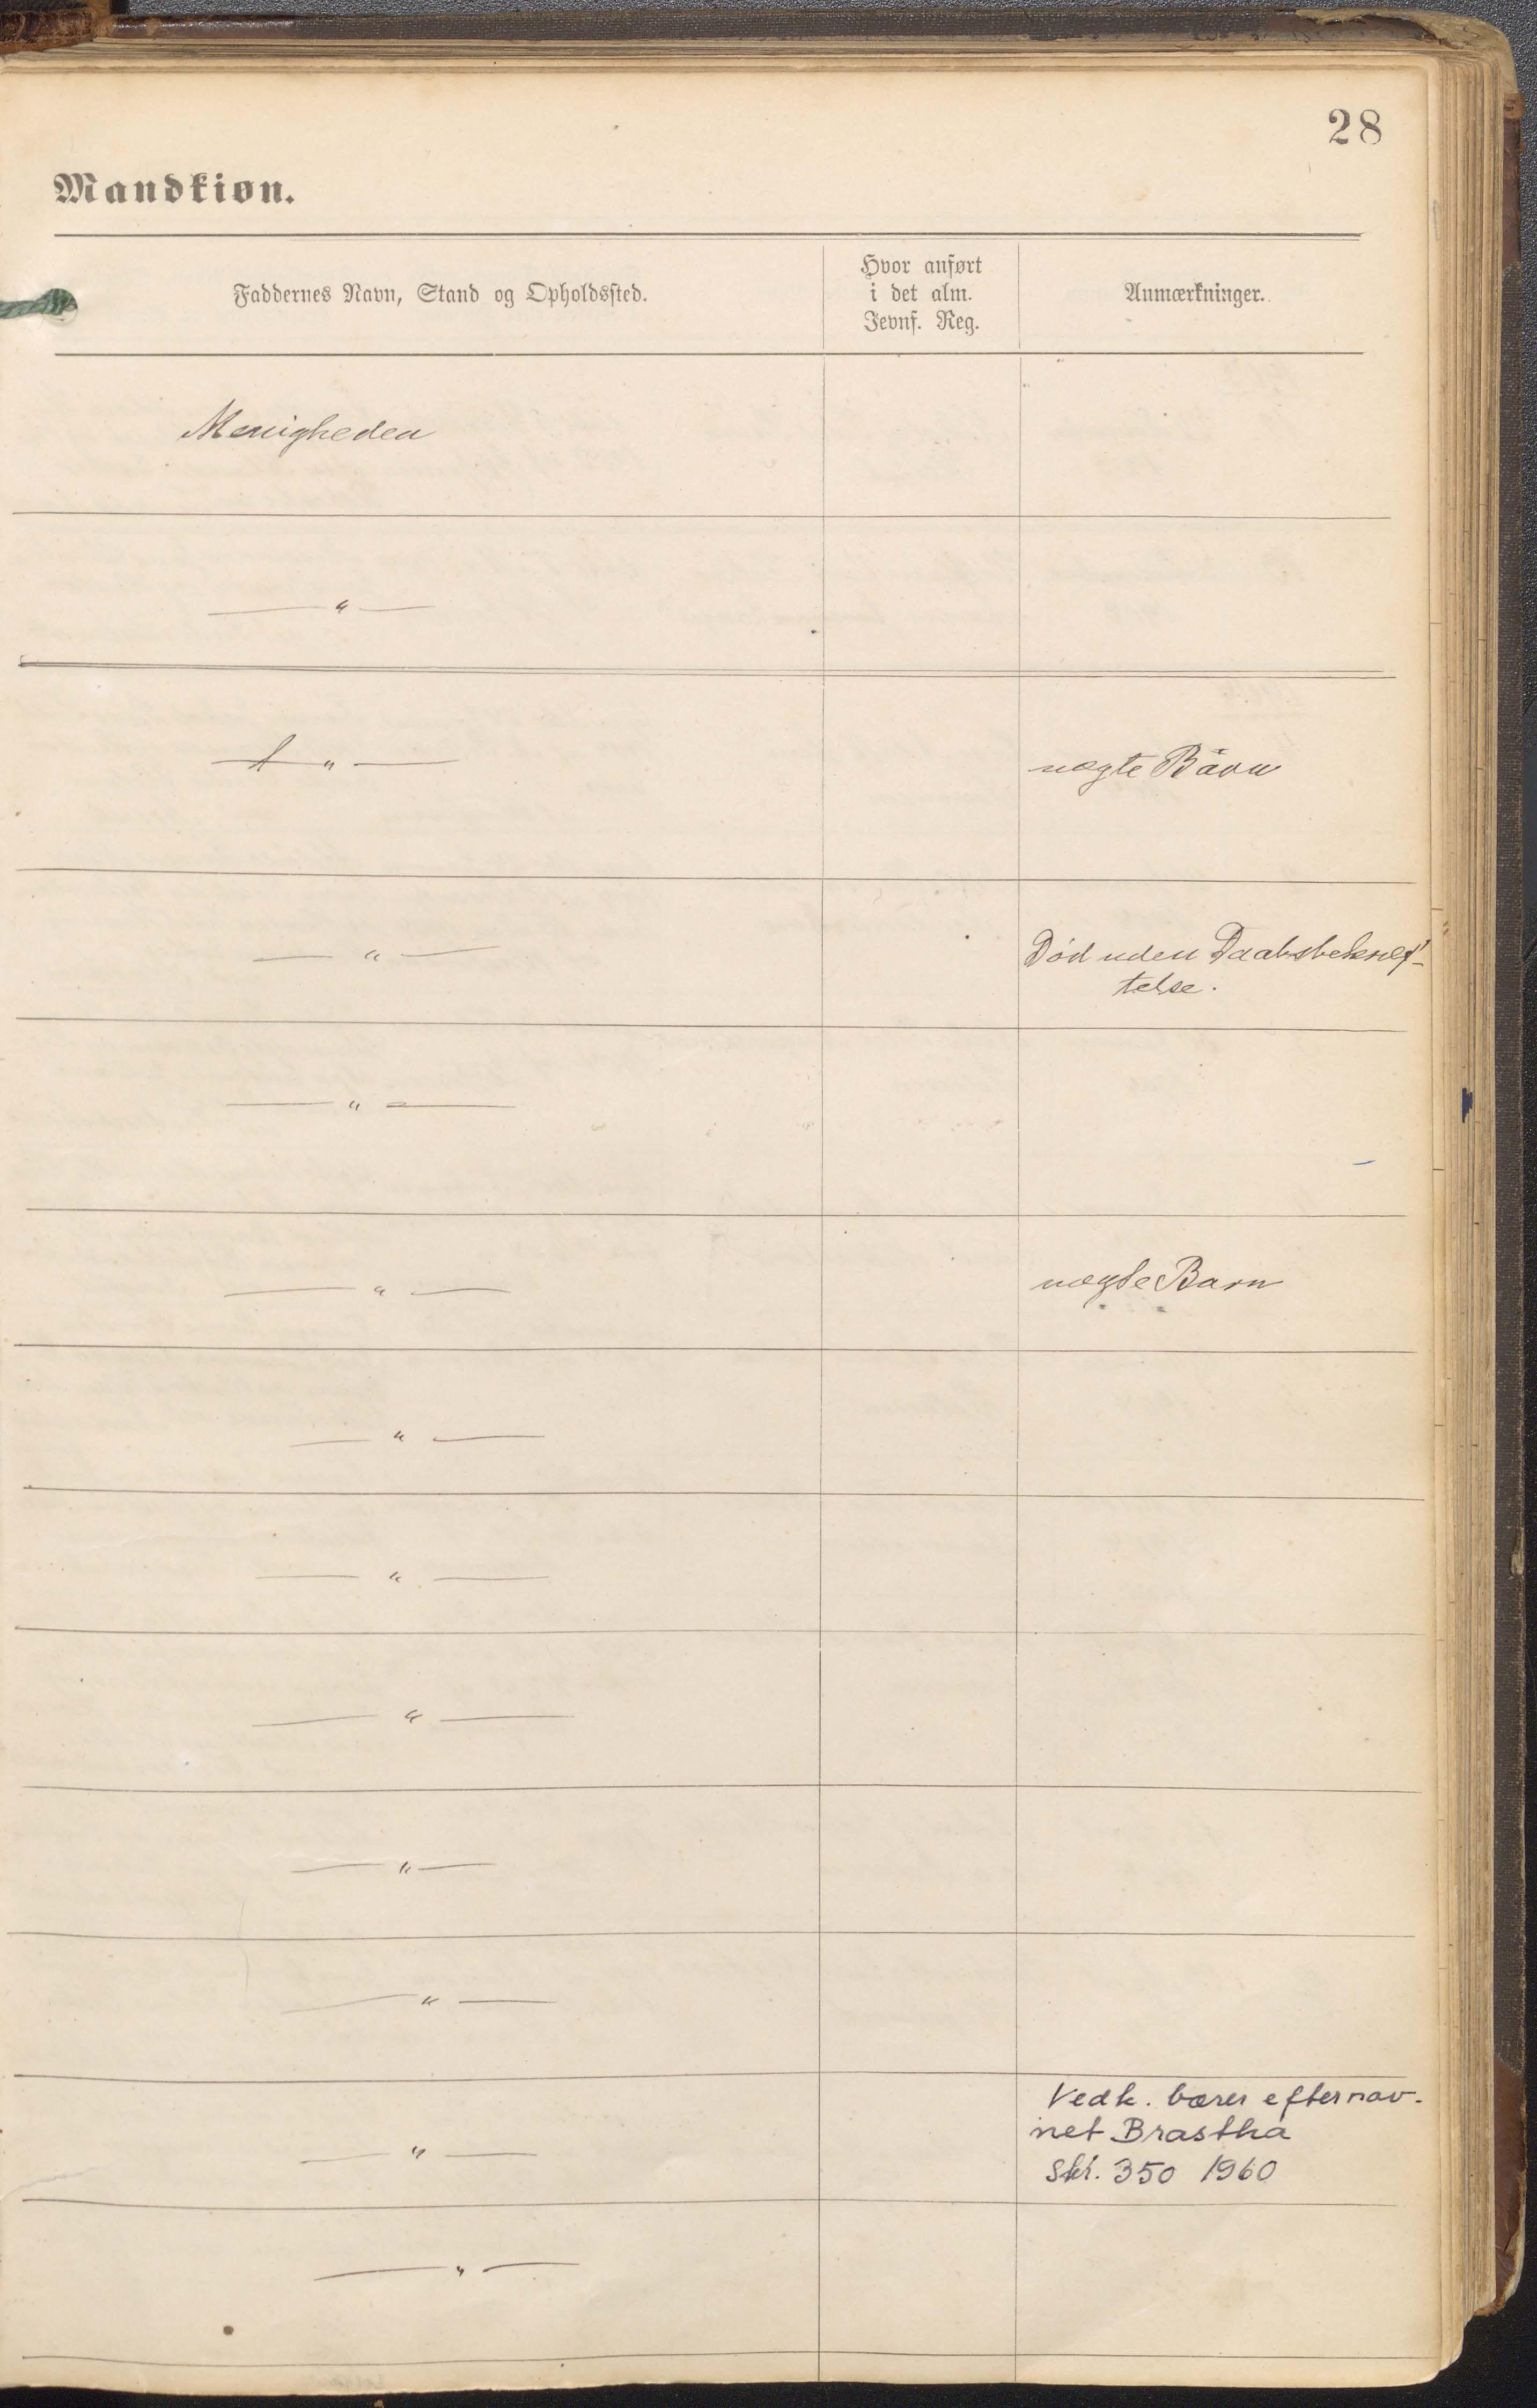 28
Mandkiøn.
Faddernes Navn, Stand og Opholdssted.
Hvor anført
i det alm.
Jevnf. Reg.
Anmærkninger.
Menigheden
— " —
— " —
uægte Barn
— " —
Død uden Daabsbekræf-
telse.
— " —
— " —
uægte Barn
— " —
— " —
— " —
— " —
— " —
— " —
Vedk. bærer efternav-
net Brastha
Skr. 350 1960
— " —